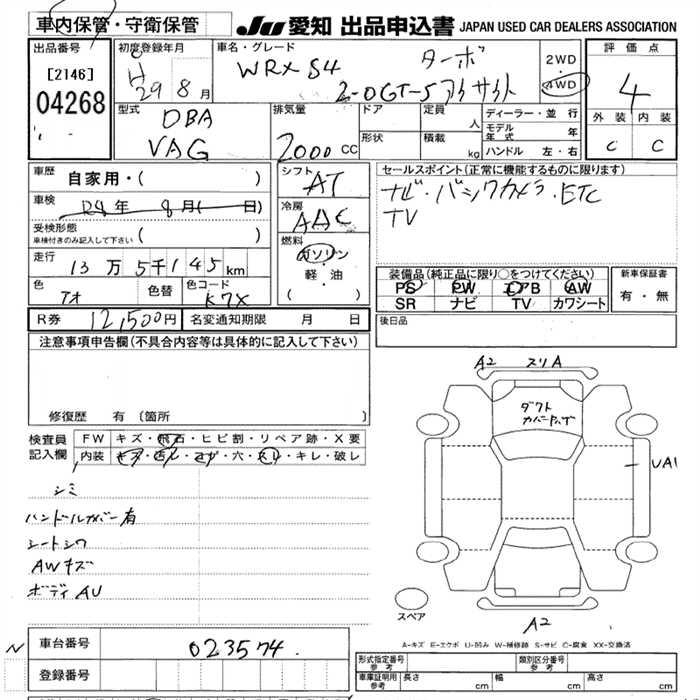 車内保管・守衛保管
JU 愛知 出品申込書 JAPAN USED CAR DEALERS ASSOCIATION
出品番号
[2146]
04268
初度登録年月
H 29年 8月
車名・グレード
WRX S4 ターボ
2.0GT-S アイサイト
2WD
4WD
評価点
4
外装 内装
C C
型式
DBA
VAG
排気量
2000 CC
ドア
定員 人
形状
積載 kg
ディーラー・並行
モデル年式 年
ハンドル 左・右
車歴 自家用・( )
車検 R4年 8月( 日)
受検形態
車検付きのみ記入して下さい ( )
走行 13万5千145km
色 アオ 色替 色コード K7X
シフト
AT
冷房
AAC
燃料
ガソリン
軽・油
( )
セールスポイント(正常に機能するものに限ります)
ナビ・バックカメラ・ETC
TV
装備品(純正品に限り○をつけてください)
PS PW エアB AW
SR ナビ TV カワシート
新車保証書
有・無
R券 12,500円 名変通知期限 月 日
後日品
注意事項申告欄(不具合内容等は具体的に記入して下さい)
修復歴 有 〔箇所
検査員記入欄
FW キズ・飛石・ヒビ割・リペア跡・X要
内装 キズ・汚レ・コゲ・穴・スレ・キレ・破レ
シミ
ハンドルカバー有
シートシワ
AWキズ
ボディAU
A2 スリA
ダクト
カバーキズ
UA1
スペア
A2
A-キズ E-エクボ U-凹み W-補修跡 S-サビ C-腐食 XX-交換済
N
車台番号 023574
登録番号
形式指定番号 参考
類別区分番号 参考
車庫証明用 参考 長さ cm 幅 cm 高さ cm